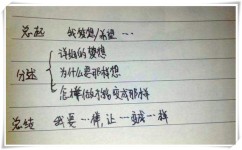 总起 我梦想/希望…
详细的梦想
分述 为什么要那样想
怎样做才能变成那样
总结 我要…,让…一样